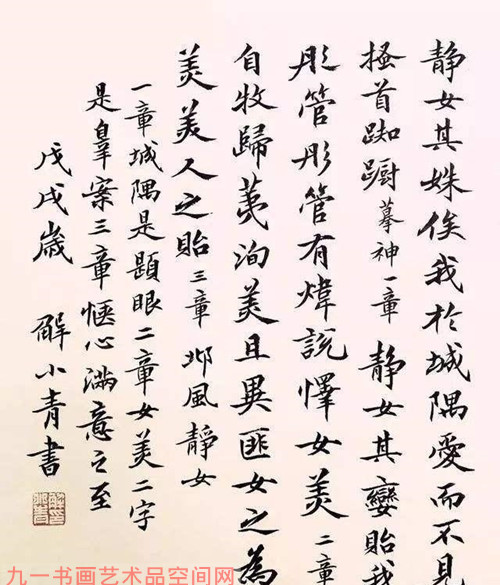 静女其姝俟我於城隅愛而不見
搔首踟蹰摹神一章静女其孌貽我
彤管彤管有煒説懌女美二章
自牧歸荑洵美且異匪女之為
美美人之貽三章邶風静女
一章城隅是題眼二章女美二字
是辠案三章惬心满意之至
戊戌歲 解小青書
九一书画艺术品空间网